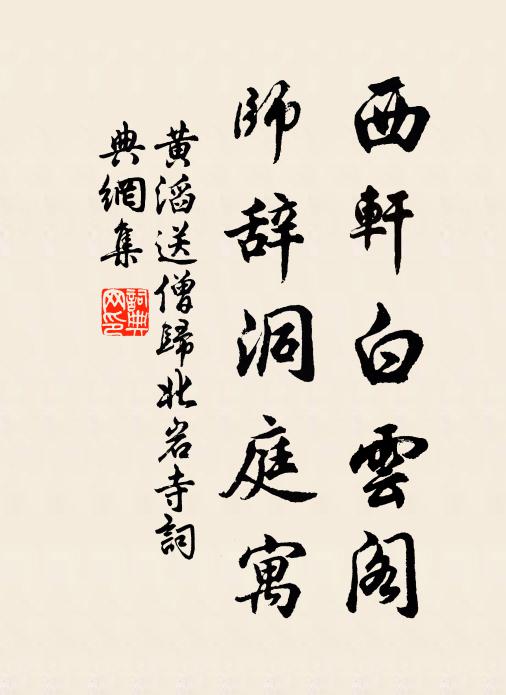 西軒白雲阁
師辞洞庭寓
黄滔送僧歸北岩寺詞
典網集
詞典网印